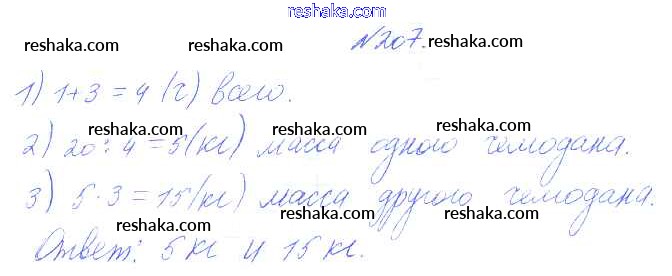 www.reshaka.com
reshaka.com reshaka.com №207. reshaka.com
1) 1+3=4 (ч) всего.
reshaka.com reshaka.com reshaka.com
2) 20:4=5(кг) масса одного чемодана.
reshaka.com reshaka.com reshaka.com
3) 5·3=15(кг) масса другого чемодана.
reshaka.com reshaka.com reshaka.com
Ответ: 5кг и 15кг.